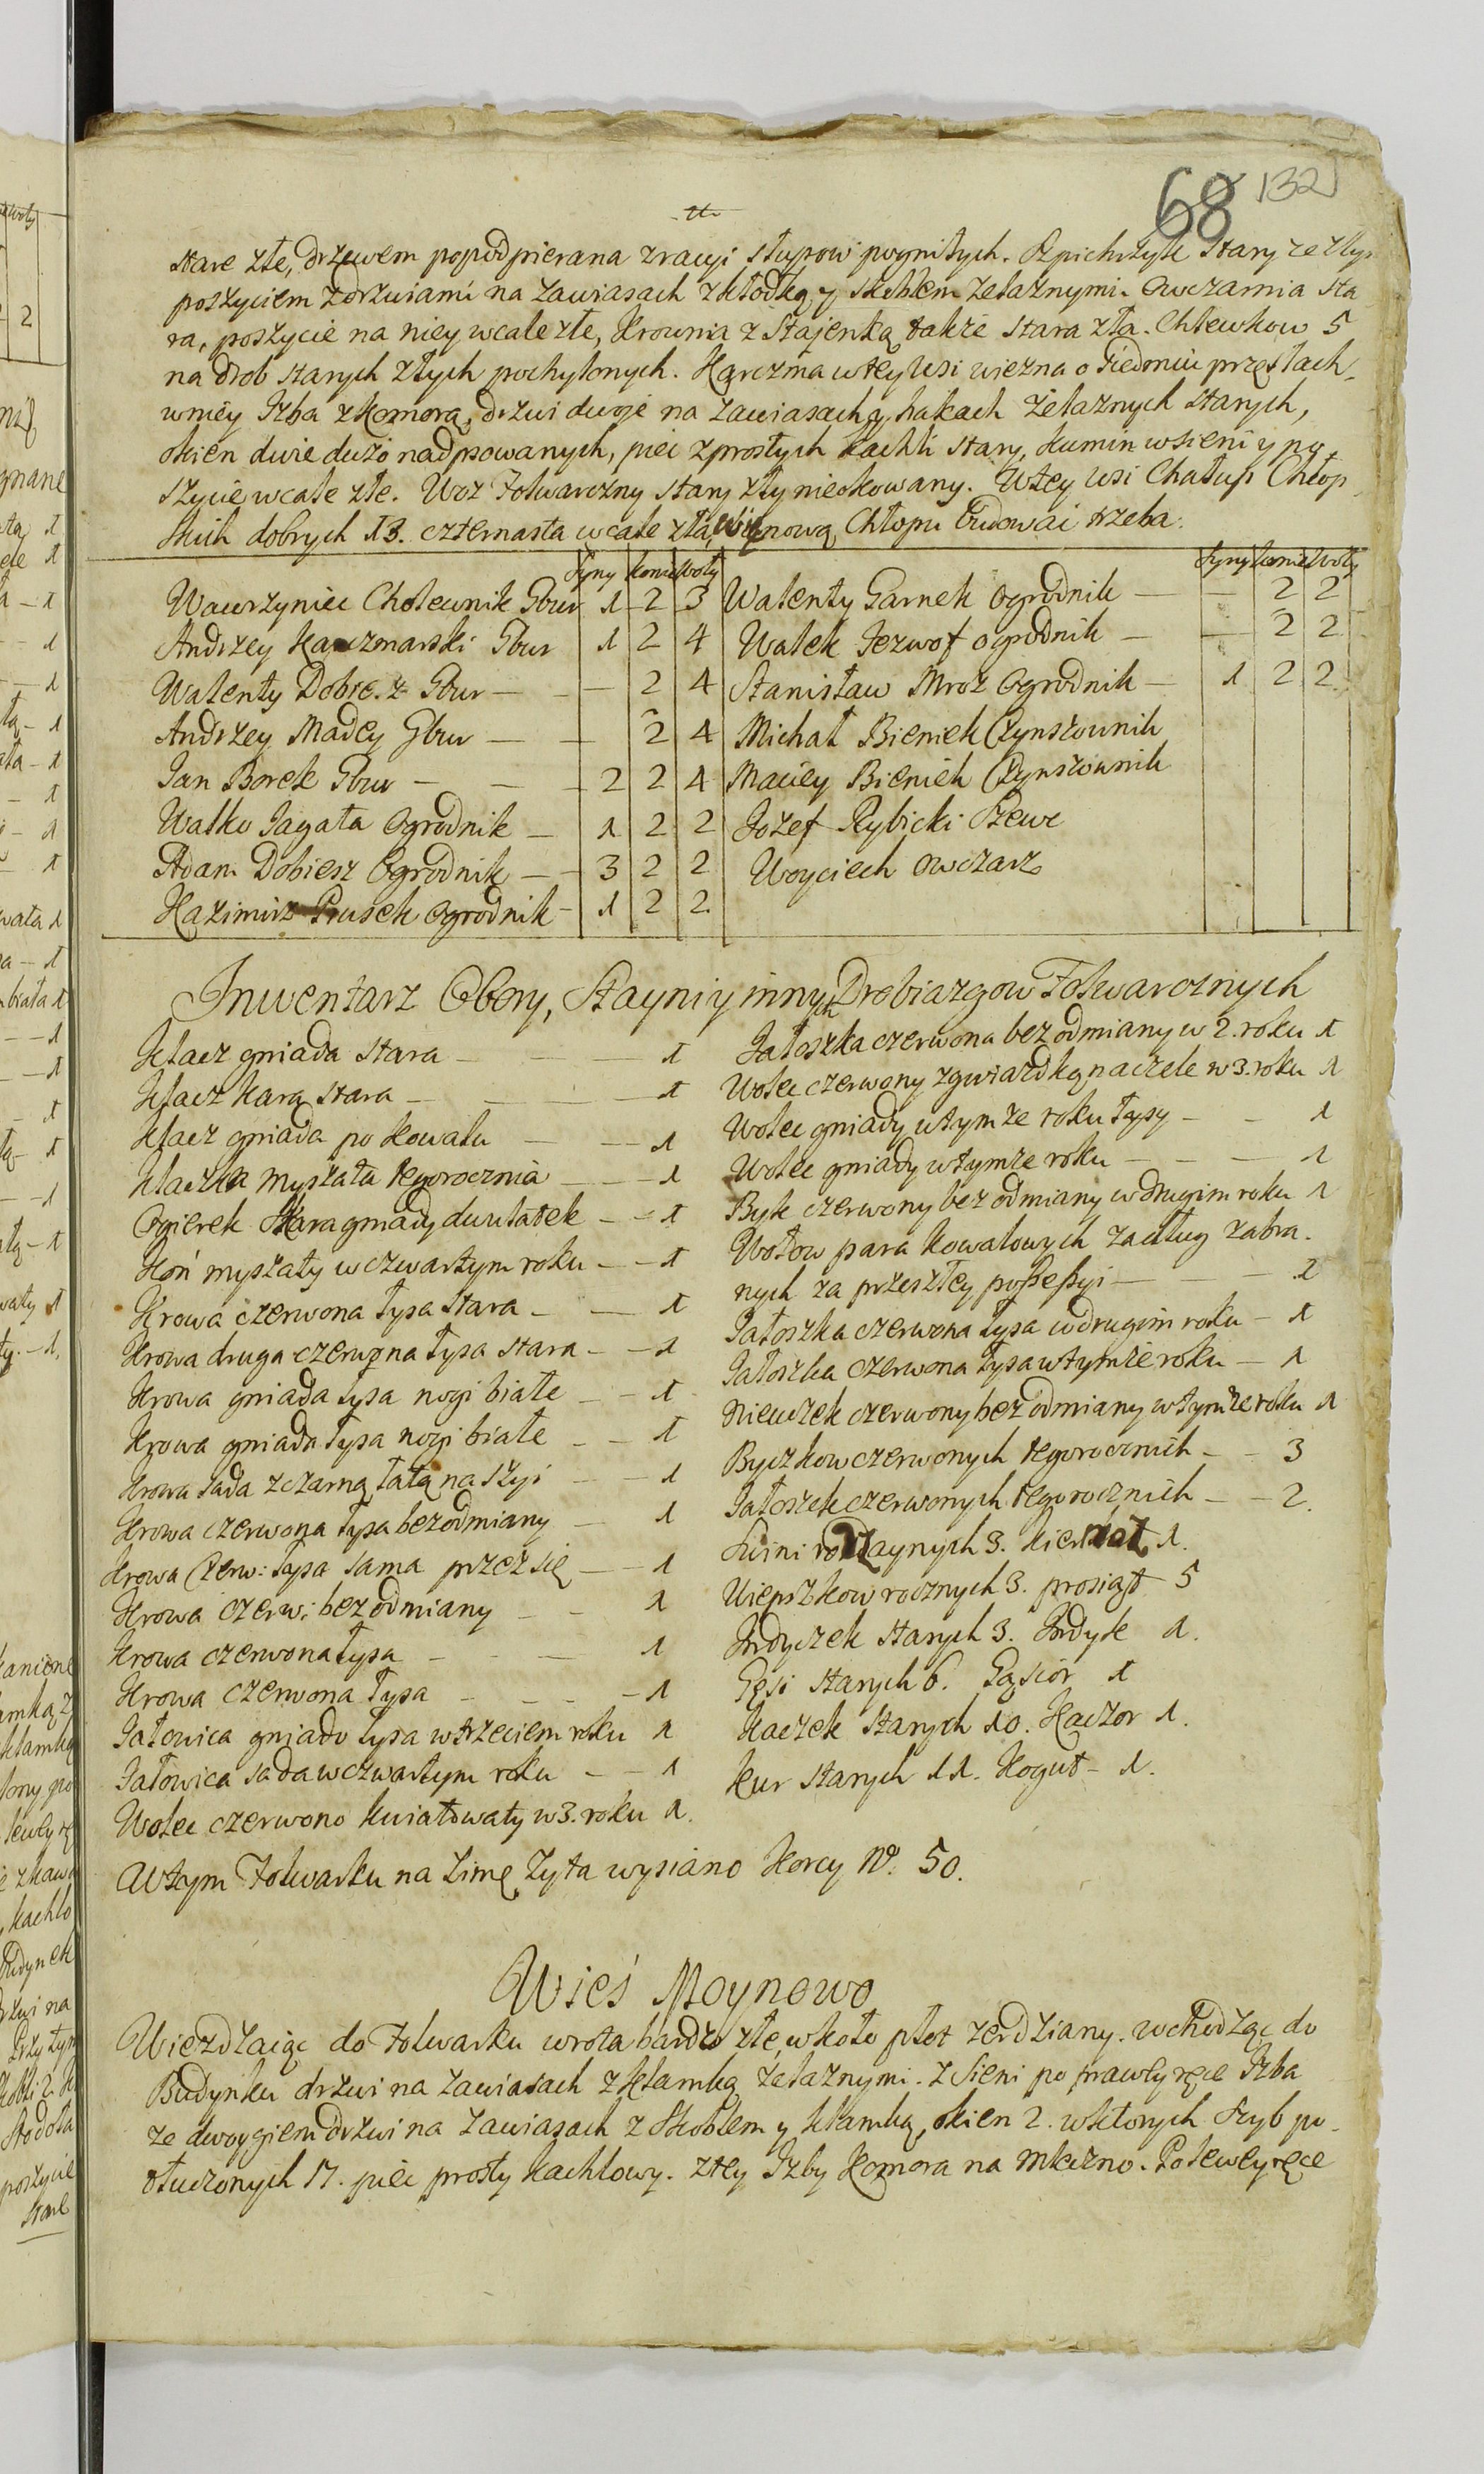 68 132
stare złe, drzewem popodpierana zracyi słupow pognitych. Szpichrzyk stary ze złym
poszyciem z drzwiami na zawiasach z kłodką y skoblem żelaznymi. Owczarnia sta
ra, poszycie na niey wcale złe, Krownia z Stajenką także stara zła. Chlewkow 5
na drob starych złych pochylonych. Karczma wtey Wsi wiezna o siedmiu przęsłach,
wniey Izba z Komorą, drzwi dwoje na zawiasach y hakach żelaznych starych,
okien dwie dużo nadpsowanych, piec z prostych kachli stary, kumin wsieni y po
szycie wcale złe. Woz Folwarczny stary zły nieokowany. Wtey Wsi Chałup Chłop
skich dobrych 13. czternasta wcale zła, nową Chłopu budować trzeba.
Syny Konie Woły Syny Konie Woły
Wawrzyniec Cholewnik Gbur 1 2 3 Walenty Garnek Ogrodnik — — 2 2
Andrzey Kaczmarski Gbur 1 2 4 Walek Jezwof ogrodnik — — 2 2
Walenty Gbur — — 2 4 Stanisław Mroz Ogrodnik — 1 2 2
Andrzey Madey Gbur — — 2 4 Michał Bieniek Czynszownik
Jan Borek Gbur — — 2 2 4 Maciey Bieniek Czynszownik
Walko Jagała Ogrodnik — 1 2 2 Jozef Rybicki Szewc
Adam Dobiesz Ogrodnik — 3 2 2 Woyciech Owczarz
Kazimirz Prusek Ogrodnik — 1 2 2
Inwentarz Obory, Stayni y innych Drobiazgow Folwarcznych
Klacz gniada stara — — — 1
Klacz kara stara — — — 1
Klacz gniada po Kowalu — — 1
Klaczka myszata tegorocznia — — 1
Ogierek Skaragniady dwulatek — — 1
Koń myszaty w czwartym roku — — 1
Krowa czerwona łysa stara — — 1
Krowa druga czerwona łysa stara — — 1
Krowa gniada łysa nogi białe — — 1
Krowa gniada łysa nogi białe — — 1
Krowa sada z czarną łatą na szyi — — 1
Krowa czerwona łysa bez odmiany — 1
Krowa Czerw: łysa sama przez się — — 1
Krowa czerw: bez odmiany — — 1
Krowa czerwona łysa — — — 1
Krowa czerwona łysa — — — 1
Jałowica gniado łysa w trzeciem roku 1
Jałowica sada w czwartym roku — — 1
Wolec czerwono kwiatowaty w 3. roku 1.
Jałoszka czerwona bez odmiany w 2. roku 1
Wolec czerwony z gwiazdką na czele w 3. roku 1
Wolec gniady wtymże roku łysy — — 1
Wolec gniady wtymże roku — — — 1
Byk czerwony bez odmiany w drugim roku 1
Wołow para kowalowych za dług zabra-
nych za przeszłey possessyi — — — 2
Jałoszka czerwona łysa w drugim roku — 1
Jałoszka czerwona łysa wtymże roku — 1
Nieuczek czerwony bez odmiany wtymże roku 1
Byczkow czerwonych tegorocznich — — 3
Jałoszek czerwonych tegorocznich — — 2.
Swini rodzaynych 3. kiernoz 1.
Wieprzkow rocznych 3. prosiąt 5
Indyczek starych 3. Indyk 1.
Gęsi starych 6. Gąsior 1
Kaczek starych 10. Kaczor 1.
Kur starych 11. Kogut — 1.
Wtym Folwarku na Zimę Żyta wysiano Korcy No. 50.
Wieś Moynowo
Wiezdzaiąc do Folwarku wrota bardzo złe, wkoło płot żerdziany. wchodząc do
Budynku drzwi na zawiasach z klamką żelaznymi. z Sieni po prawey ręce Izba
ze dwoygiem drzwi na zawiasach z Skoblem y klamką, okien 2. wktorych Szyb po-
tłuczonych 17. piec prosty kachlowy. z tey Izby Komora na mleczno. Po lewey ręce